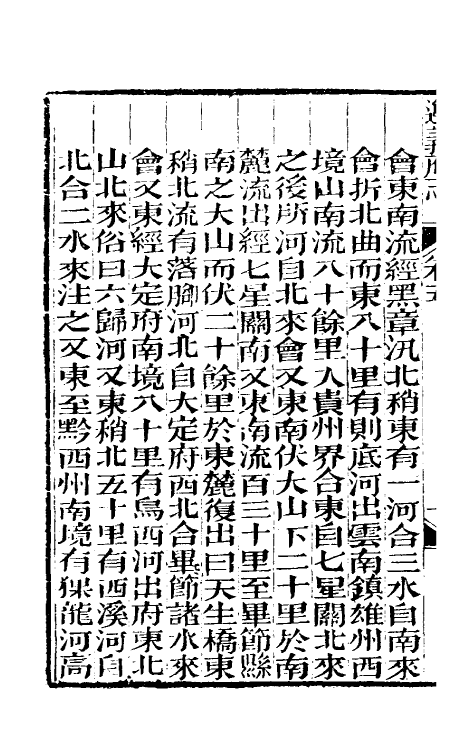 遵義府志
卷五
會東南流經黑章汛北稍東有一河合三水自南來
會折北曲而東八十里有則底河出雲南鎮雄州西
境山南流八十餘里入貴州界合東自七星關北來
之後所河自北來會又東南伏大山下二十里於南
麓流出經七星關南又東南流百三十里至畢節縣
南之大山而伏二十餘里於東麓復出曰天生橋東
稍北流有落腳河北自大定府西北合畢節諸水來
會又東經大定府南境八十里有烏西河出府東北
山北來俗曰六歸河又東稍北五十里有西溪河自
北合二水來注之又東至黔西州南境有猓龍河高